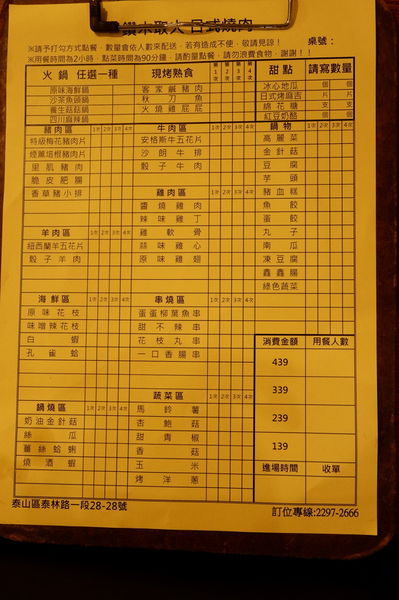 鑽木取火 日式燒肉
※請予打勾方式點餐，數量會依人數來配送，若有造成不便，敬請見諒！ 桌號：
※用餐時間為2小時，點菜時間為90分鐘，請酌量點餐，請勿浪費食物，謝謝！！
火鍋 任選一種 現烤熟食 第1次 第2次 第3次 第4次 甜點 請寫數量
原味海鮮鍋 客家鹹豬肉 冰心地瓜 個 個
沙茶魚頭鍋 秋刀魚 日式烤麻吉 片 片
養生菇菇鍋 火燒雞屁屁 綿花糖 支 支
四川麻辣鍋 紅豆奶酪 個 個
豬肉區 1次 2次 3次 4次 牛肉區 1次 2次 3次 4次 鍋物 1次 2次 3次 4次
特級梅花豬肉片 安格斯牛五花片 高麗菜
煙薰培根豬肉片 沙朗牛排 金針菇
里肌豬肉 骰子牛肉 豆腐
脆皮肥腸 芋頭
香草豬小排 雞肉區 豬血糕
醬燒雞肉 魚餃
辣味雞丁 蛋餃
羊肉區 1次 2次 3次 4次 雞軟骨 丸子
紐西蘭羊五花片 蒜味雞心 南瓜
骰子羊肉 原味雞翅 凍豆腐
鑫鑫腸
綠色蔬菜
海鮮區 1次 2次 3次 4次 串燒區 1次 2次 3次 4次
原味花枝 蛋蛋柳葉魚串
味噌辣花枝 甜不辣串 消費金額 用餐人數
白蝦 花枝丸串 439
孔雀蛤 一口香腸串
339
蔬菜區 1次 2次 3次 4次
鍋燒區 1次 2次 3次 4次 馬鈴薯 239
奶油金針菇 杏鮑菇
絲瓜 甜青椒 139
薑絲蛤蜊 香菇
燒酒蝦 玉米 進場時間 收單
烤洋蔥
泰山區泰林路一段28-28號 訂位專線:2297-2666